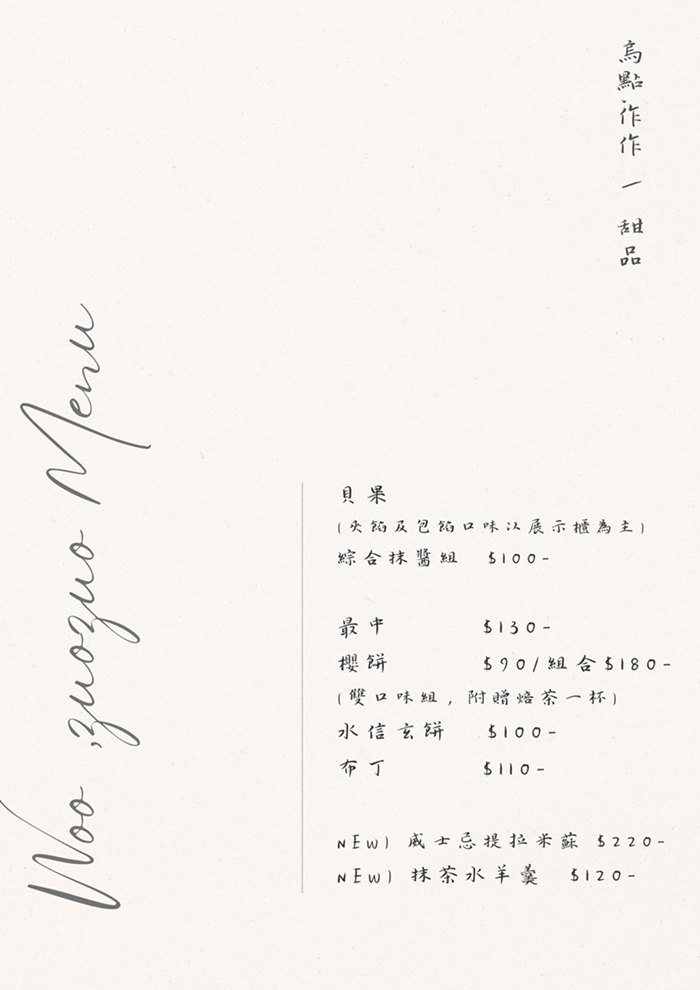 烏點作作 — 甜品
Woo ,zuozuo Menu
貝果
(夾餡及包餡口味以展示櫃為主)
綜合抹醬組 $100-
最中 $130-
櫻餅 $90/組合$180-
(雙口味組, 附贈焙茶一杯)
水信玄餅 $100-
布丁 $110-
NEW) 威士忌提拉米蘇 $220-
NEW) 抹茶水羊羹 $120-